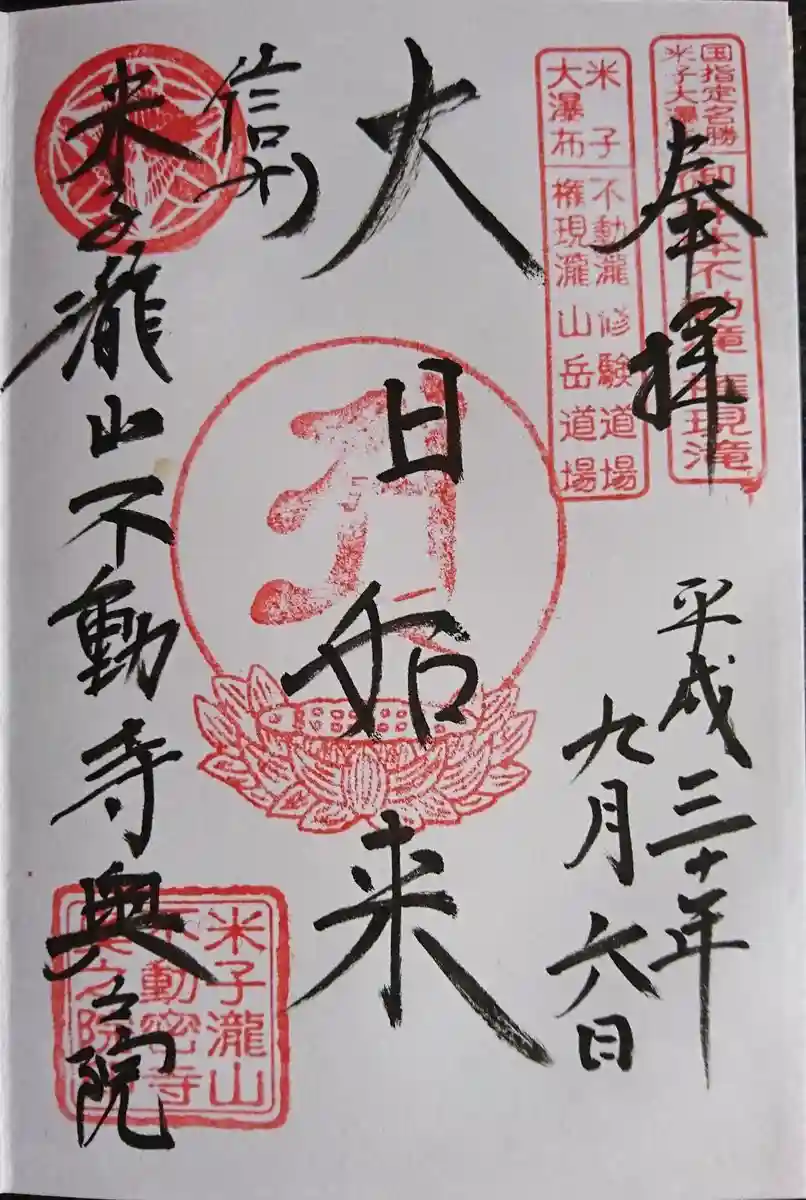 奉拝
国指定名勝
米子大瀑
日本不動滝 権現滝
米子
大瀑布
不動瀧 修験道場
権現瀧 山岳道場
平成三十年
九月六日
大日如来
信州
米子瀧山不動寺奥之院
米子瀧山
不動密寺
奥之院